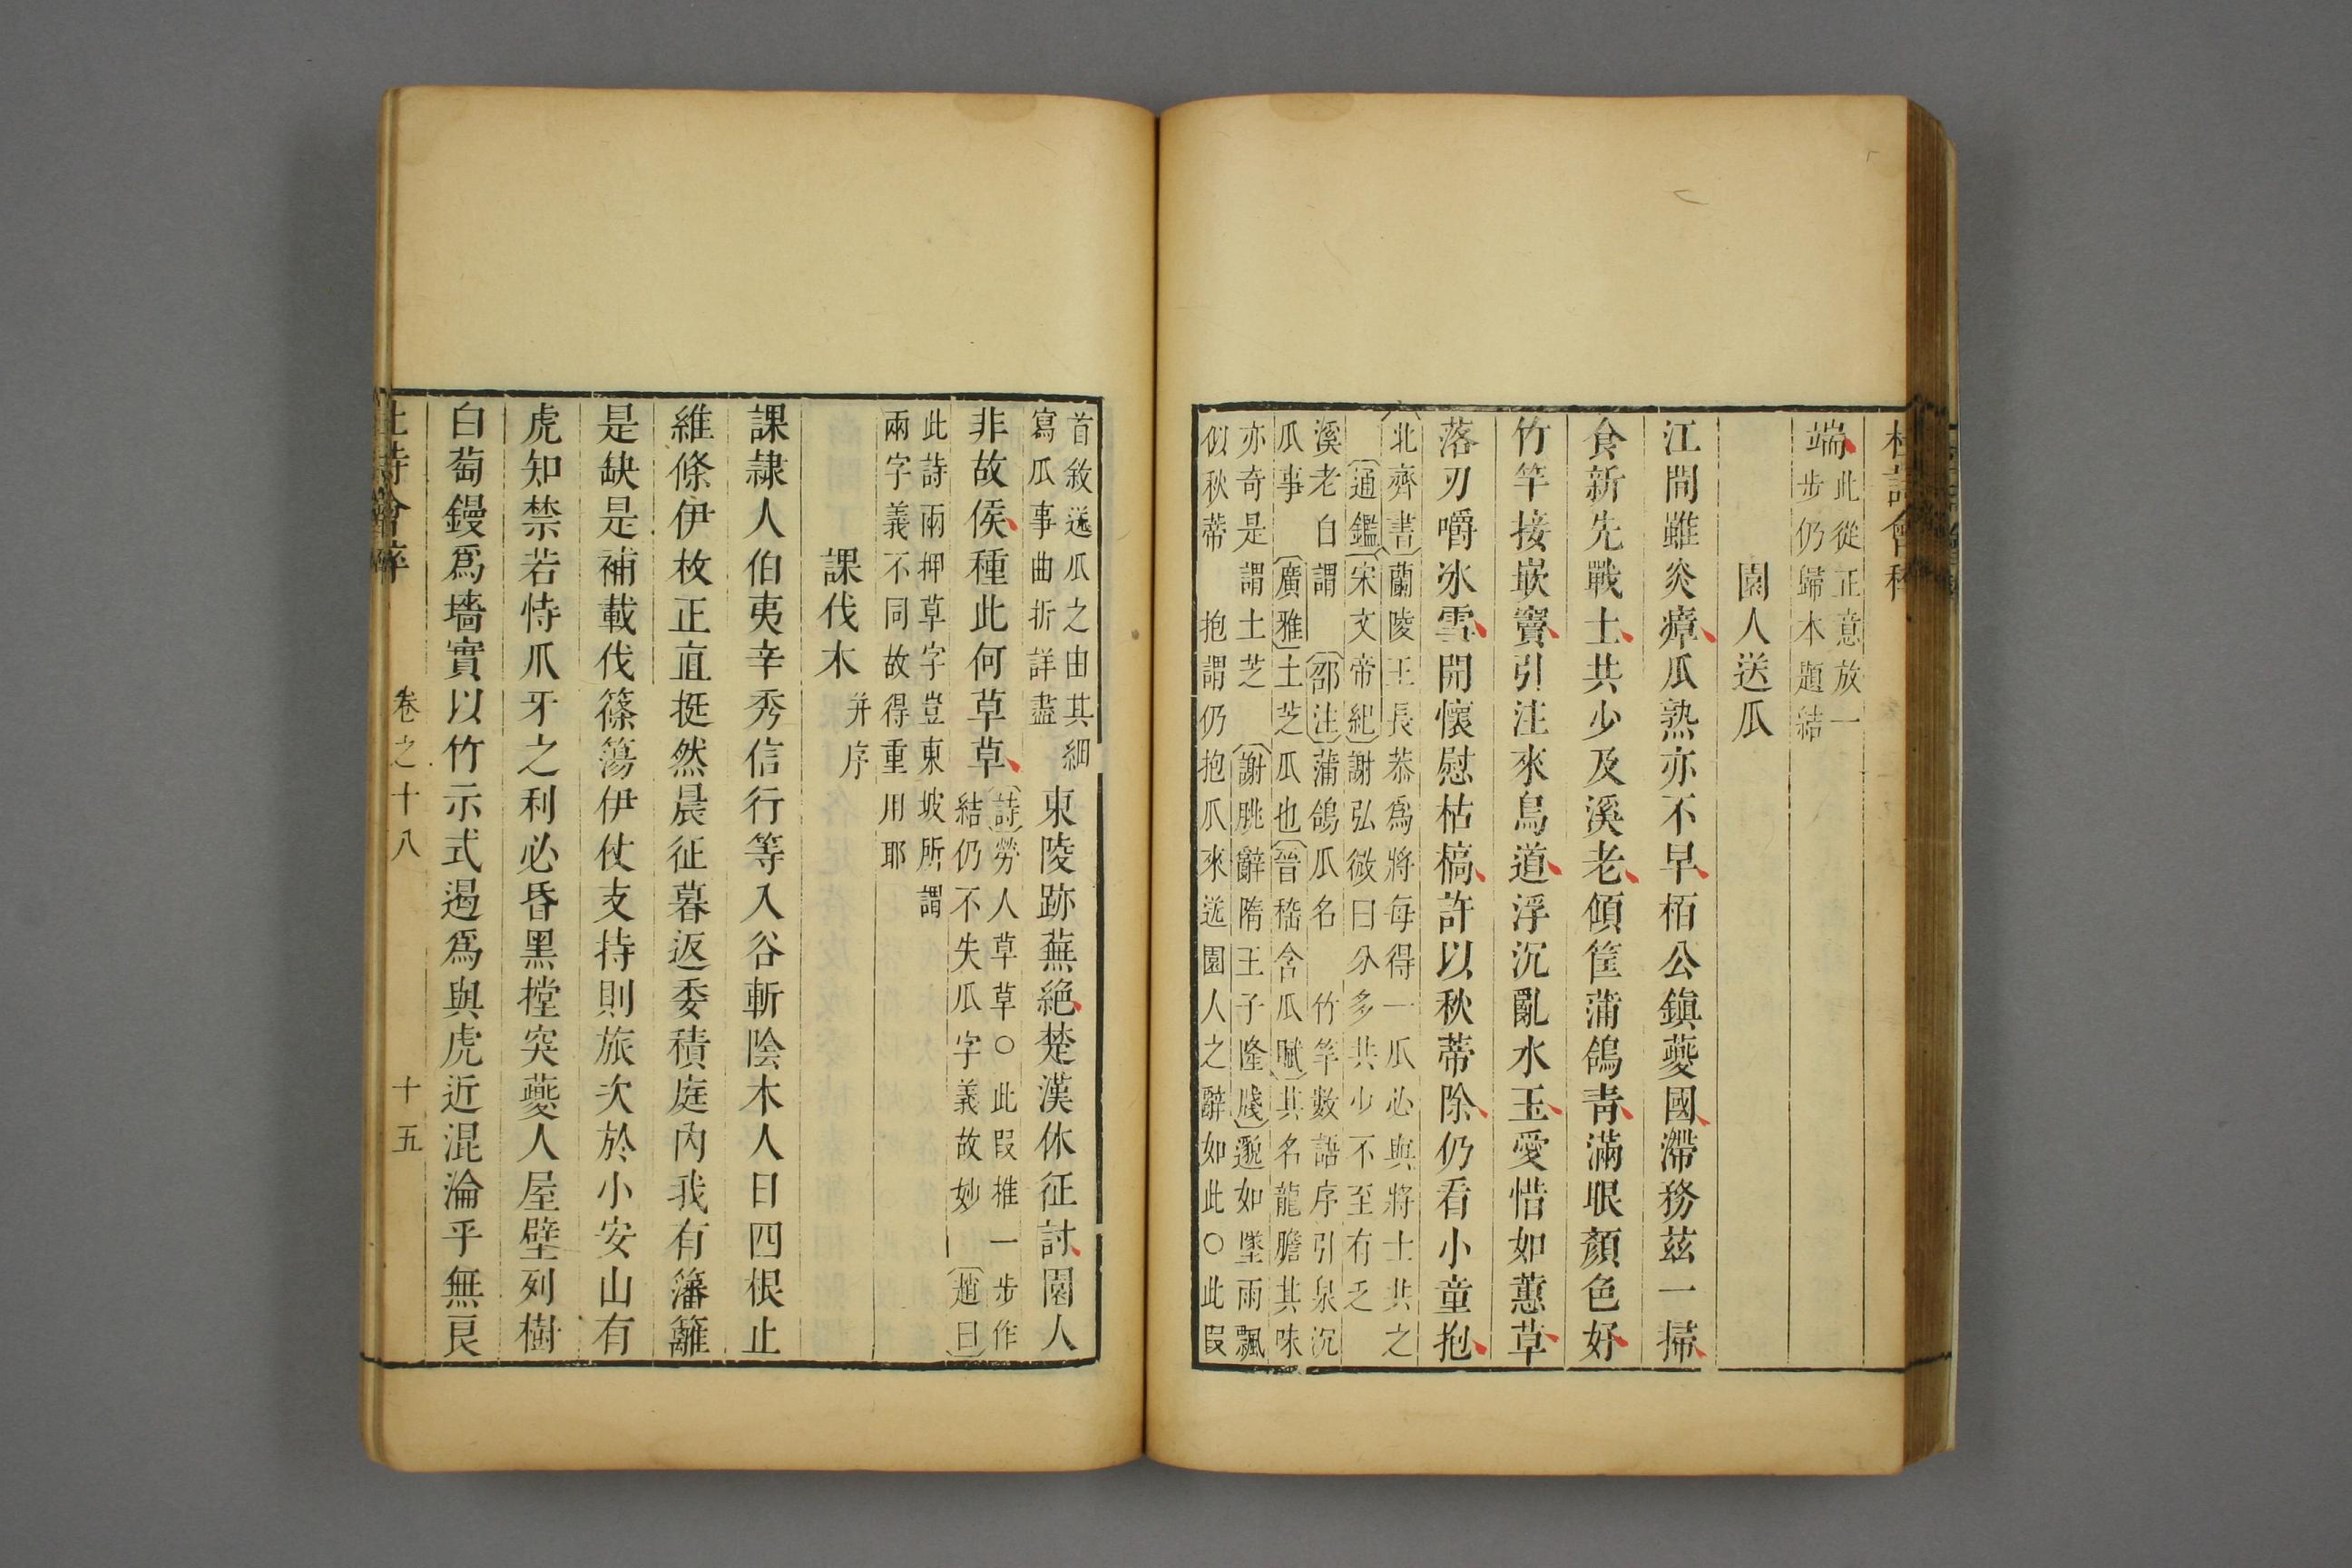 杜詩會稡
端此從正意放一
步仍歸本題結
園人送瓜
江間雖炎瘴瓜熟亦不早栢公鎮夔國滯務茲一掃
食新先戰士共少及溪老傾筐蒲鴿青滿眼顏色好
竹竿接嵌竇引注來鳥道浮沉亂水玉愛惜如蕙草
落刃嚼冰雪開懷慰枯槁許以秋蒂除仍看小童抱
北齊書蘭陵王長恭爲將每得一瓜必與將士共之
通鑑宋文帝紀謝弘微曰分多共少不至有乏
溪老白謂 邵注蒲鴿瓜名 竹竿數語序引泉沉
瓜事 廣雅土芝瓜也晉嵇含瓜賦其名龍膽其味
亦奇是謂土芝 謝朓辭隋王子隆牋邈如墜雨飄
似秋蒂 抱謂仍抱瓜來送園人之辭如此○此叚
首敘送瓜之由其細
寫瓜事曲折詳盡
東陵跡蕪絶楚漢休征討園人
非故侯種此何草草
詩勞人草草○此叚推一步作
結仍不失瓜字義故妙 趙曰
此詩兩押草字豈東坡所謂
兩字義不同故得重用耶
課伐木并序
課隷人伯夷辛秀信行等入谷斬陰木人日四根止
維條伊枚正直挺然晨征暮返委積庭內我有藩籬
是缺是補載伐篠簜伊仗支持則旅次於小安山有
虎知禁若恃爪牙之利必昏黑㯑突夔人屋壁列樹
白萄鏝爲墻實以竹示式遏爲與虎近混淪乎無良
杜詩會稡 卷之十八 十五